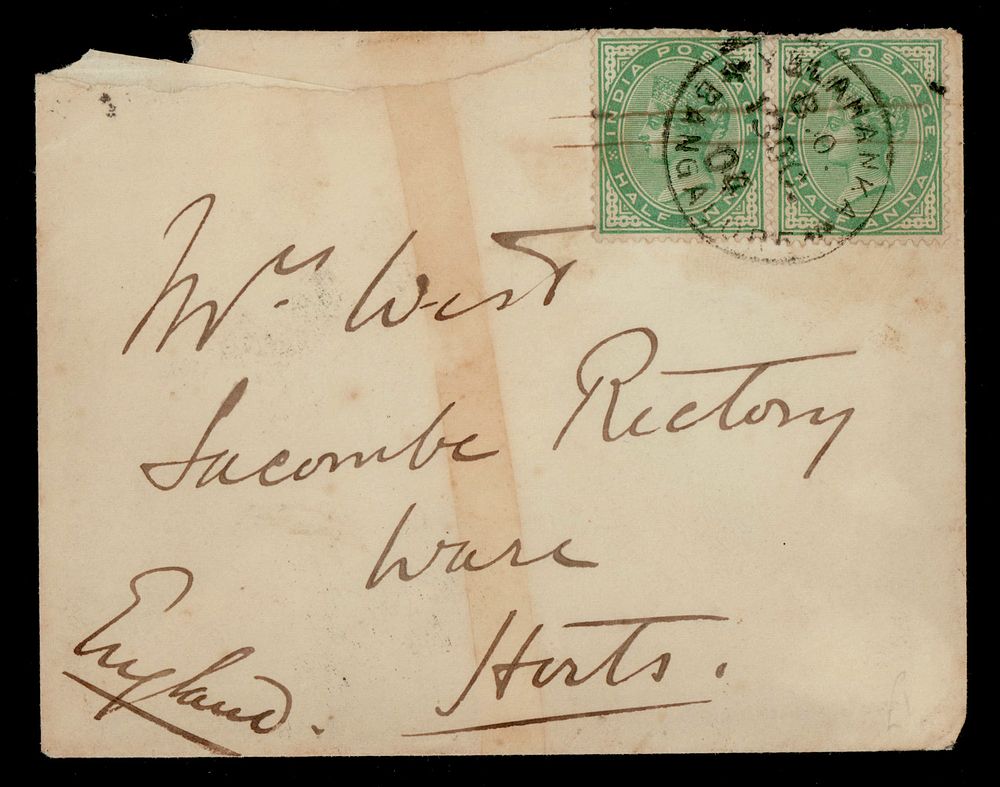 INDIA POSTAGE
HALF ANNA
INDIA POSTAGE
HALF ANNA
B.O.
04
Mrs West
Sacombe Rectory
Ware
Herts.
England.